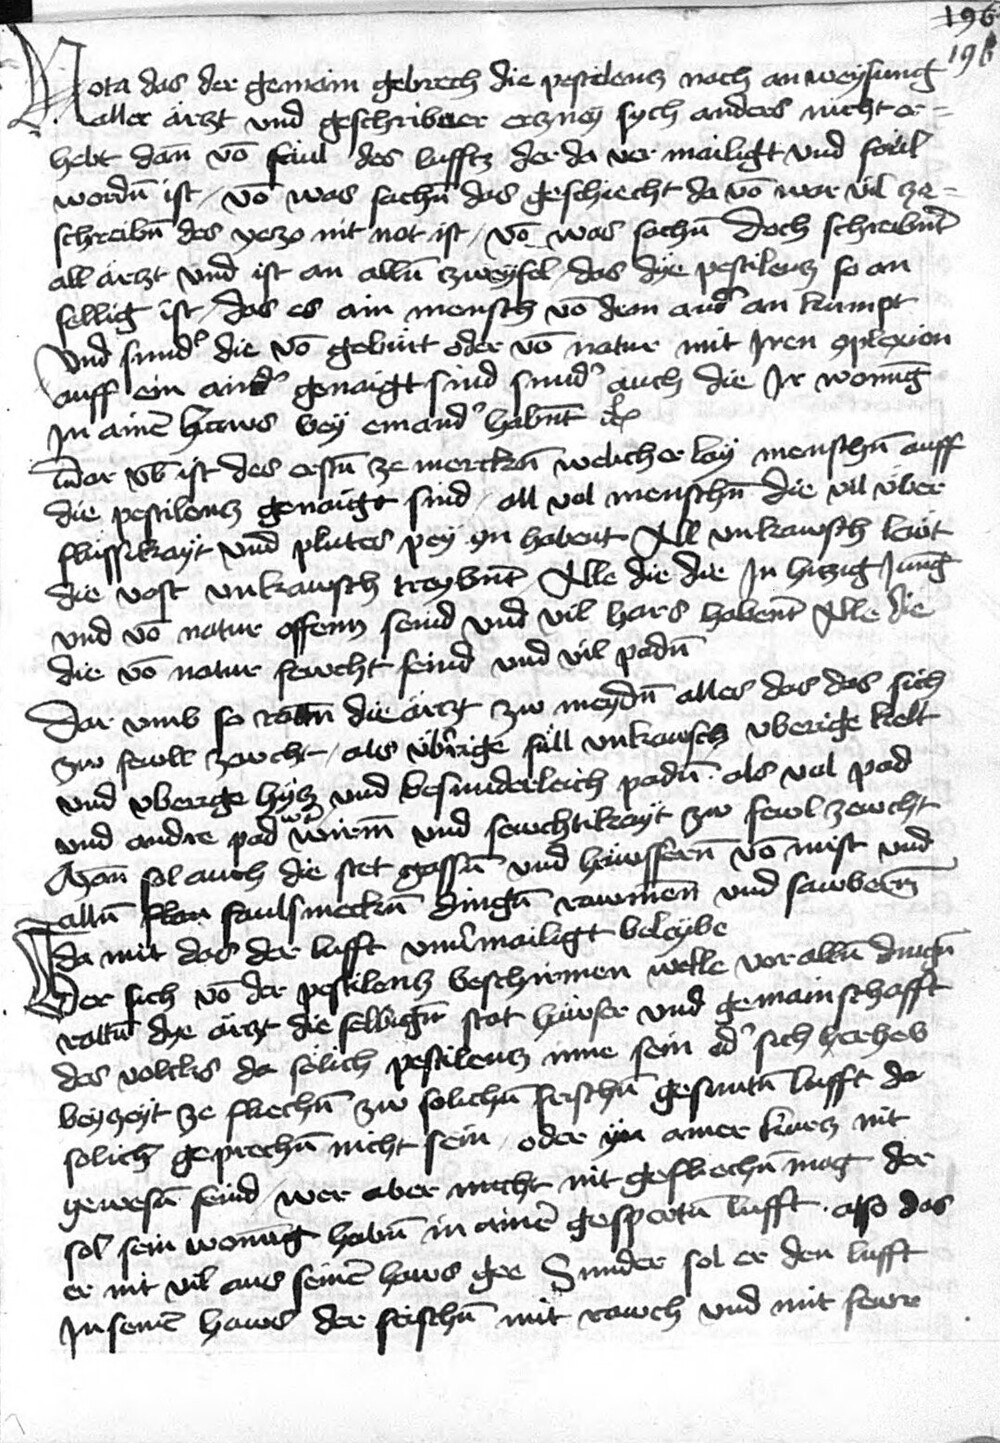 196
196
Nota das der gemain gebrech die pestilencz nach anweysung
aller ärzt vnd geschribner erczney sych anders nicht er=
hebt dan̄ vō faul des luffts der da vermailigt vnd fäul
wordn̄ ist / vō was sachn̄ das geschiecht da vō wär vil ze=
schreibn̄ des yeczo nit not ist / vō was sachn̄ doch schreibnt
all ärzt vnd ist an alln̄ zweyfel / das dye pestilencz so an
fellig ist / das es ain mensch vō dem and͛ an kumpt
vnd sund͛ die vō gebürt oder vō natur mit Iren 9plexion
auff ein aind͛ genaigt sind sund͛ auch die Ir wonūg
In ainē haws bey einand͛ habnt
Dar vb̄ ist des erstn̄ ze merckn̄ welicher lay menschn̄ auff
die pestilencz genaigt sind / all vol menschn̄ die vil über
flüssikayt vnd plutes pey yn habent All vnkawsch lewt
die vast vnkawsch treybnt Alle die die In hiczig Iung
vnd vō natur offenn seind vnd vil hars habent Alle die
die vō natur fewcht seind vnd vil padn̄
Dar vmb so rattn̄ die ärzt zw meydn̄ alles das das sich
zw fewll zewcht / als üb͛rige füll vnkawsch vberige kelt
vnd vberige hycz vnd besunderleich padn̄ als vol pad
vnd andre pad wirm̄ vnd fewchtikayt zw fewl zewcht
Man̄ sol auch die stet gassn̄ vnd häwssern̄ vō mist vnd
alln̄ faulsmeckn̄ dingn̄ rawmen̄ vnd sawbern̄
da mit das der lufft vnu͛mailigt beleybe
Wer sich vō der pestilencz beschirmen welle vor alln̄ dingn̄
rattn̄ dye ärzt die selbign̄ stat häwser vnd gemainschafft
des volcks da sölich pestilencz inne sein od͛ sich herheb
beyzeyt ze fliechn̄ zw solichn̄ frischn̄ gesuntn̄ lufft da
solich geprechn̄ nicht sein / oder yn ainer kurcz nit
gewesn̄ seind / wer aber nicht nit gefliechn̄ mag der
sol sein wonūg habn̄ in ainē gespertn̄ lufft also das
er nit vil aus seinē haws gee Sunder sol er den lufft
In seinē haws der frischn̄ mit rawch vnd mit fewr